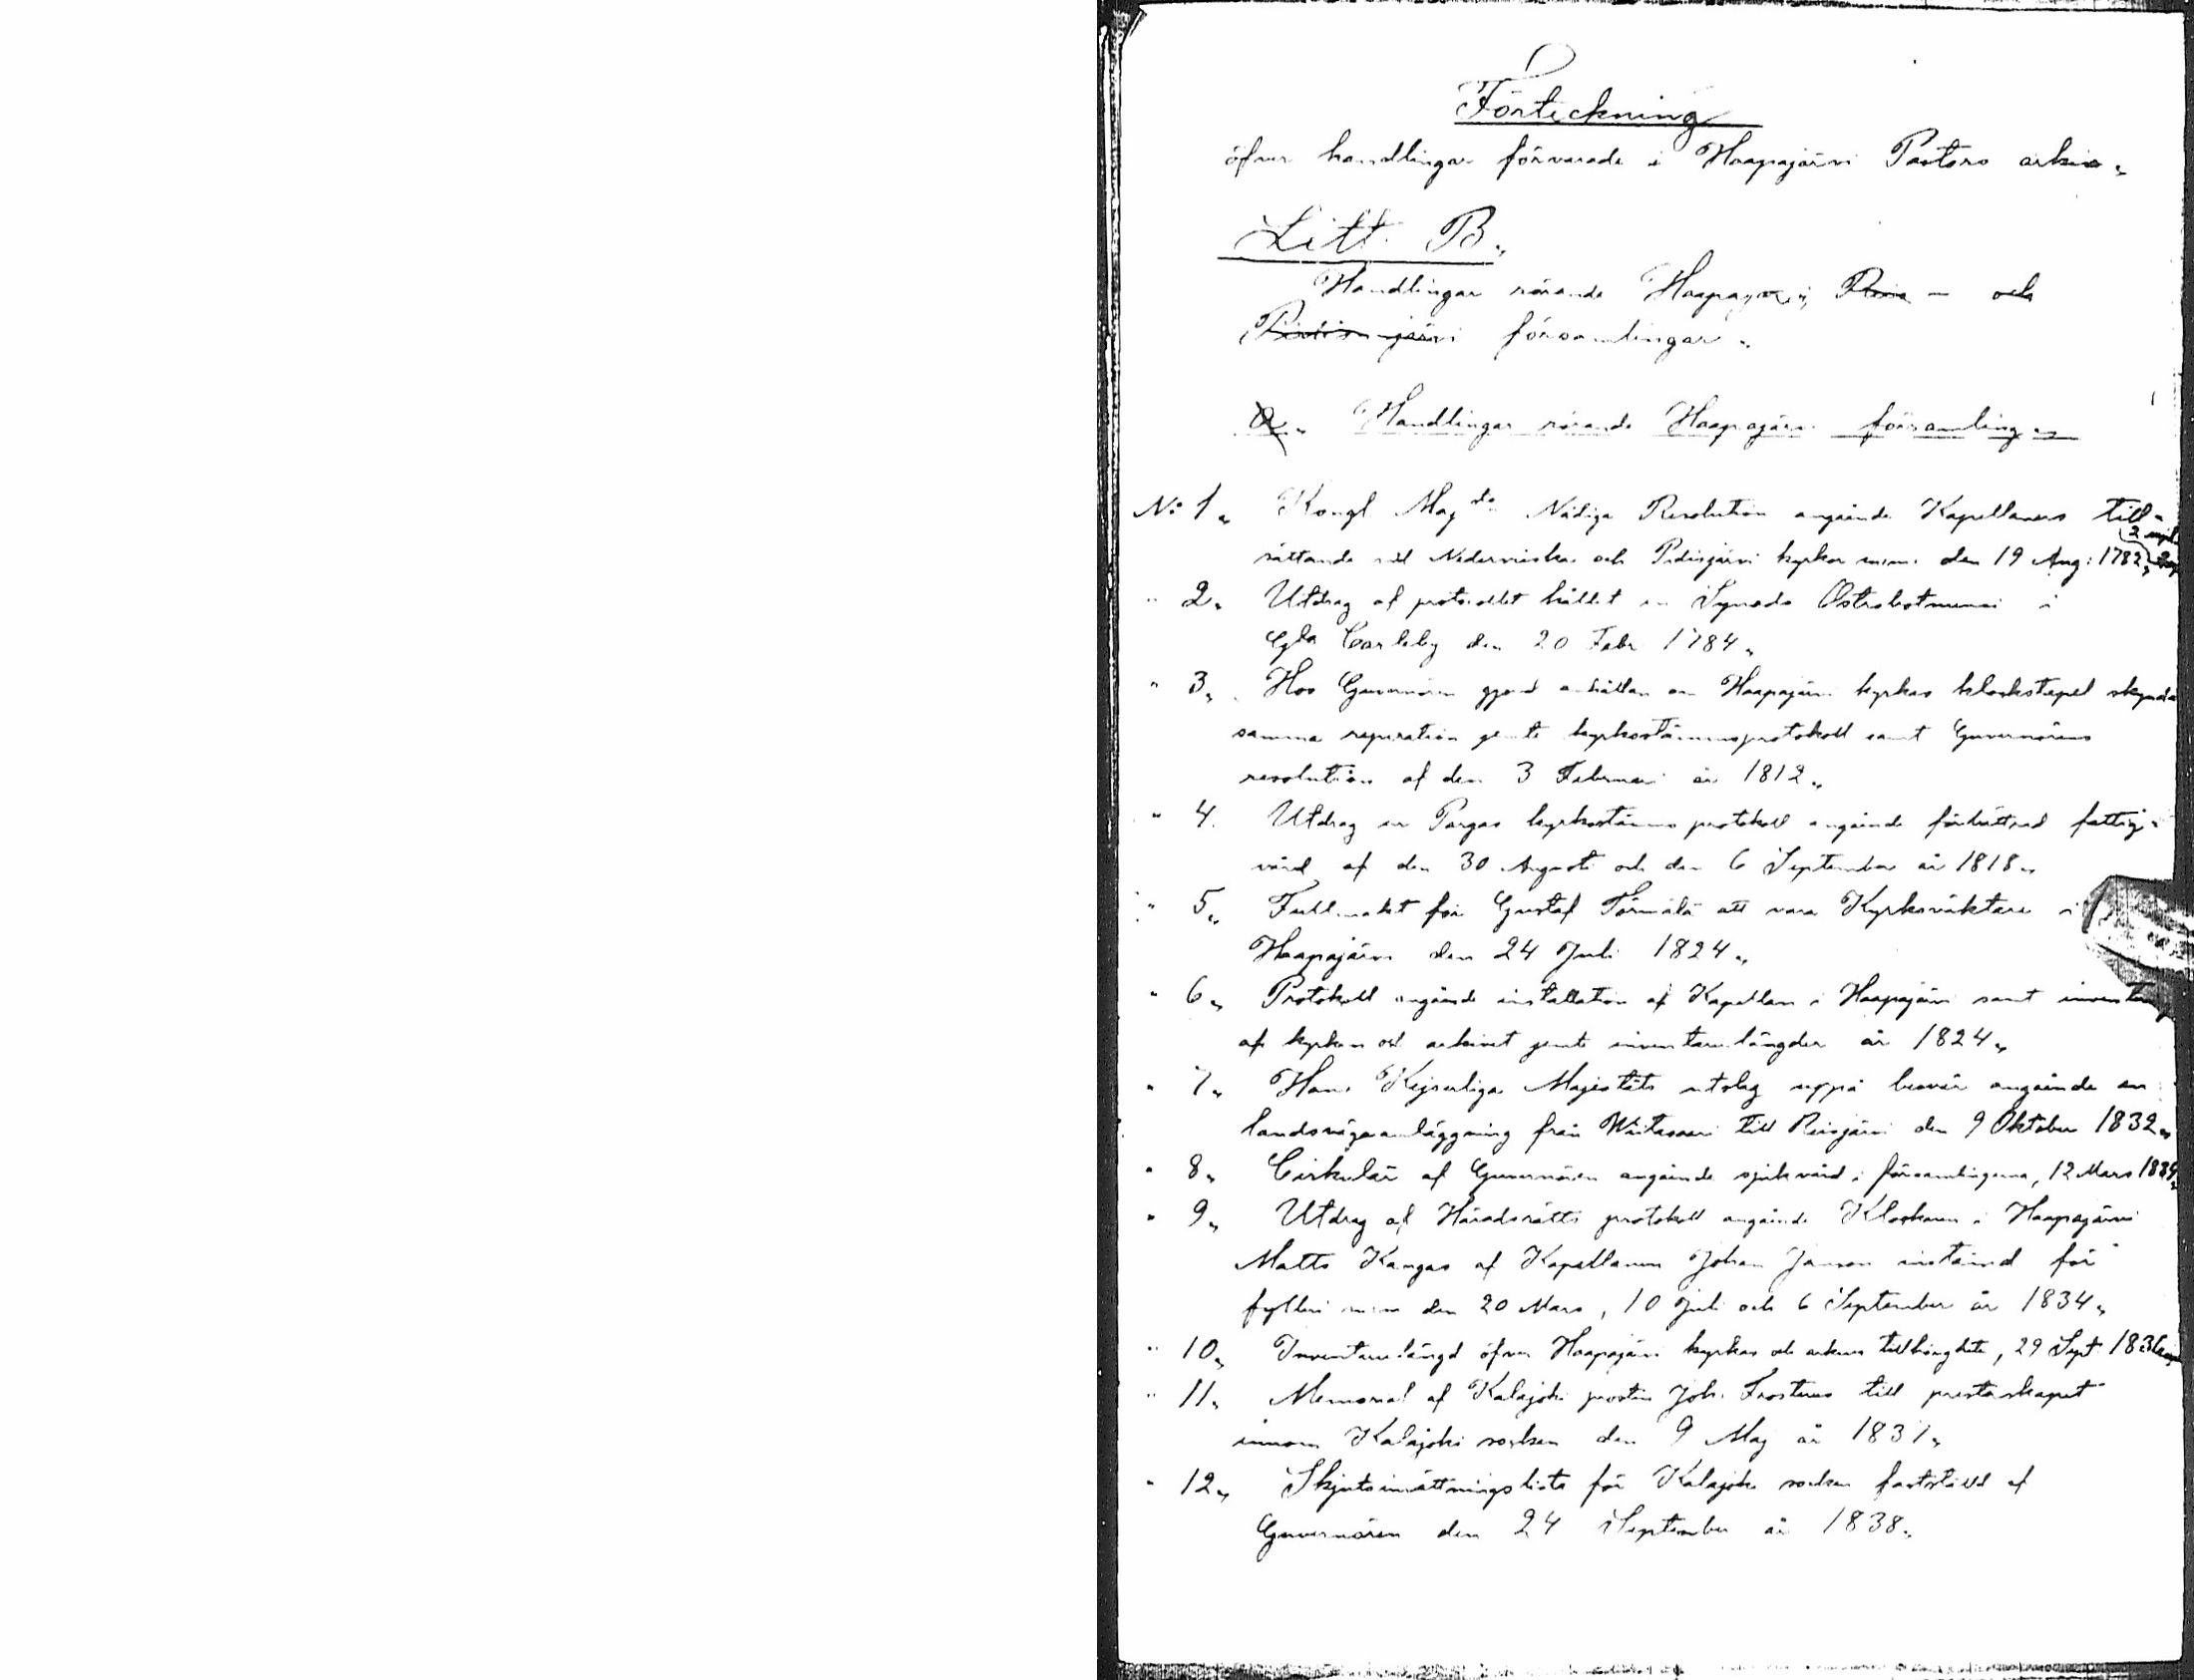 Förteckning
öfver handlingar förvarade i Haapajärvi Pastors arkiv„
Litt. B„
Handlingar rörande Haapajärvi, Reis- och
Pidisjärvi församlingar„
a„ Handlingar rörande Haapajärvi församling„
No 1„ Kongl Maj:ts Nådiga Resolution angående Kapellaners till-
sättande vid Nedervieska och Pidisjärvi kyrkor m.m. den 19 Aug: 1782„ 2 expl
" 2„ Utdrag af protocollet hållet in Synodo Ostrobotniensi i
Gla Carleby den 20 Febr 1784„
" 3„ Hos Guvernören gjord anhållan om Haapajärvi kyrkas klockstapel skynd
samma reparation jemte kyrkostämmoprotokoll samt Guvernörens
resolution af den 3 Februari år 1812„
" 4. Utdrag ur Pargas kyrkostämmo protokoll angående förbättrad fattig-
vård af den 30 Augusti och den 6 September år 1818„
" 5„ Fullmakt för Gustaf Törmälä att vara Kyrkoväktare i
Haapajärvi den 24 Juli 1824„
" 6„ Protokoll angående installation af Kapellan i Haapajärvi samt inventering
af kyrkan och arkivet jemte inventarielängder år 1824„
" 7„ Hans Kejserliga Majestäts utslag uppå besvär angående en
landsvägsanläggning från Wiitasaari till Reisjärvi den 9 Oktober 1832„
" 8„ Cirkulär af Guvernören angående sjukvård i församlingarna, 12 Mars 1834„
" 9„ Utdrag af Häradsrätts protokoll angående Klockaren i Haapajärvi
Matts Kangas af Kapellanen Johan Janson instämd för
fylleri m.m den 20 Mars, 10 Juli och 6 September år 1834„
" 10„ Inventarielängd öfver Haapajärvi kyrkas och arkivs tillhörighete, 29 Sept 1836
" 11„ Memorial af Kalajoki prosten Joh. Frosterus till presterskapet
innom Kalajoki socken den 9 Maj år 1837„
" 12„ Skjutsinrättningslista för Kalajoki socken fastställd af
Guvernören den 24 September år 1838„